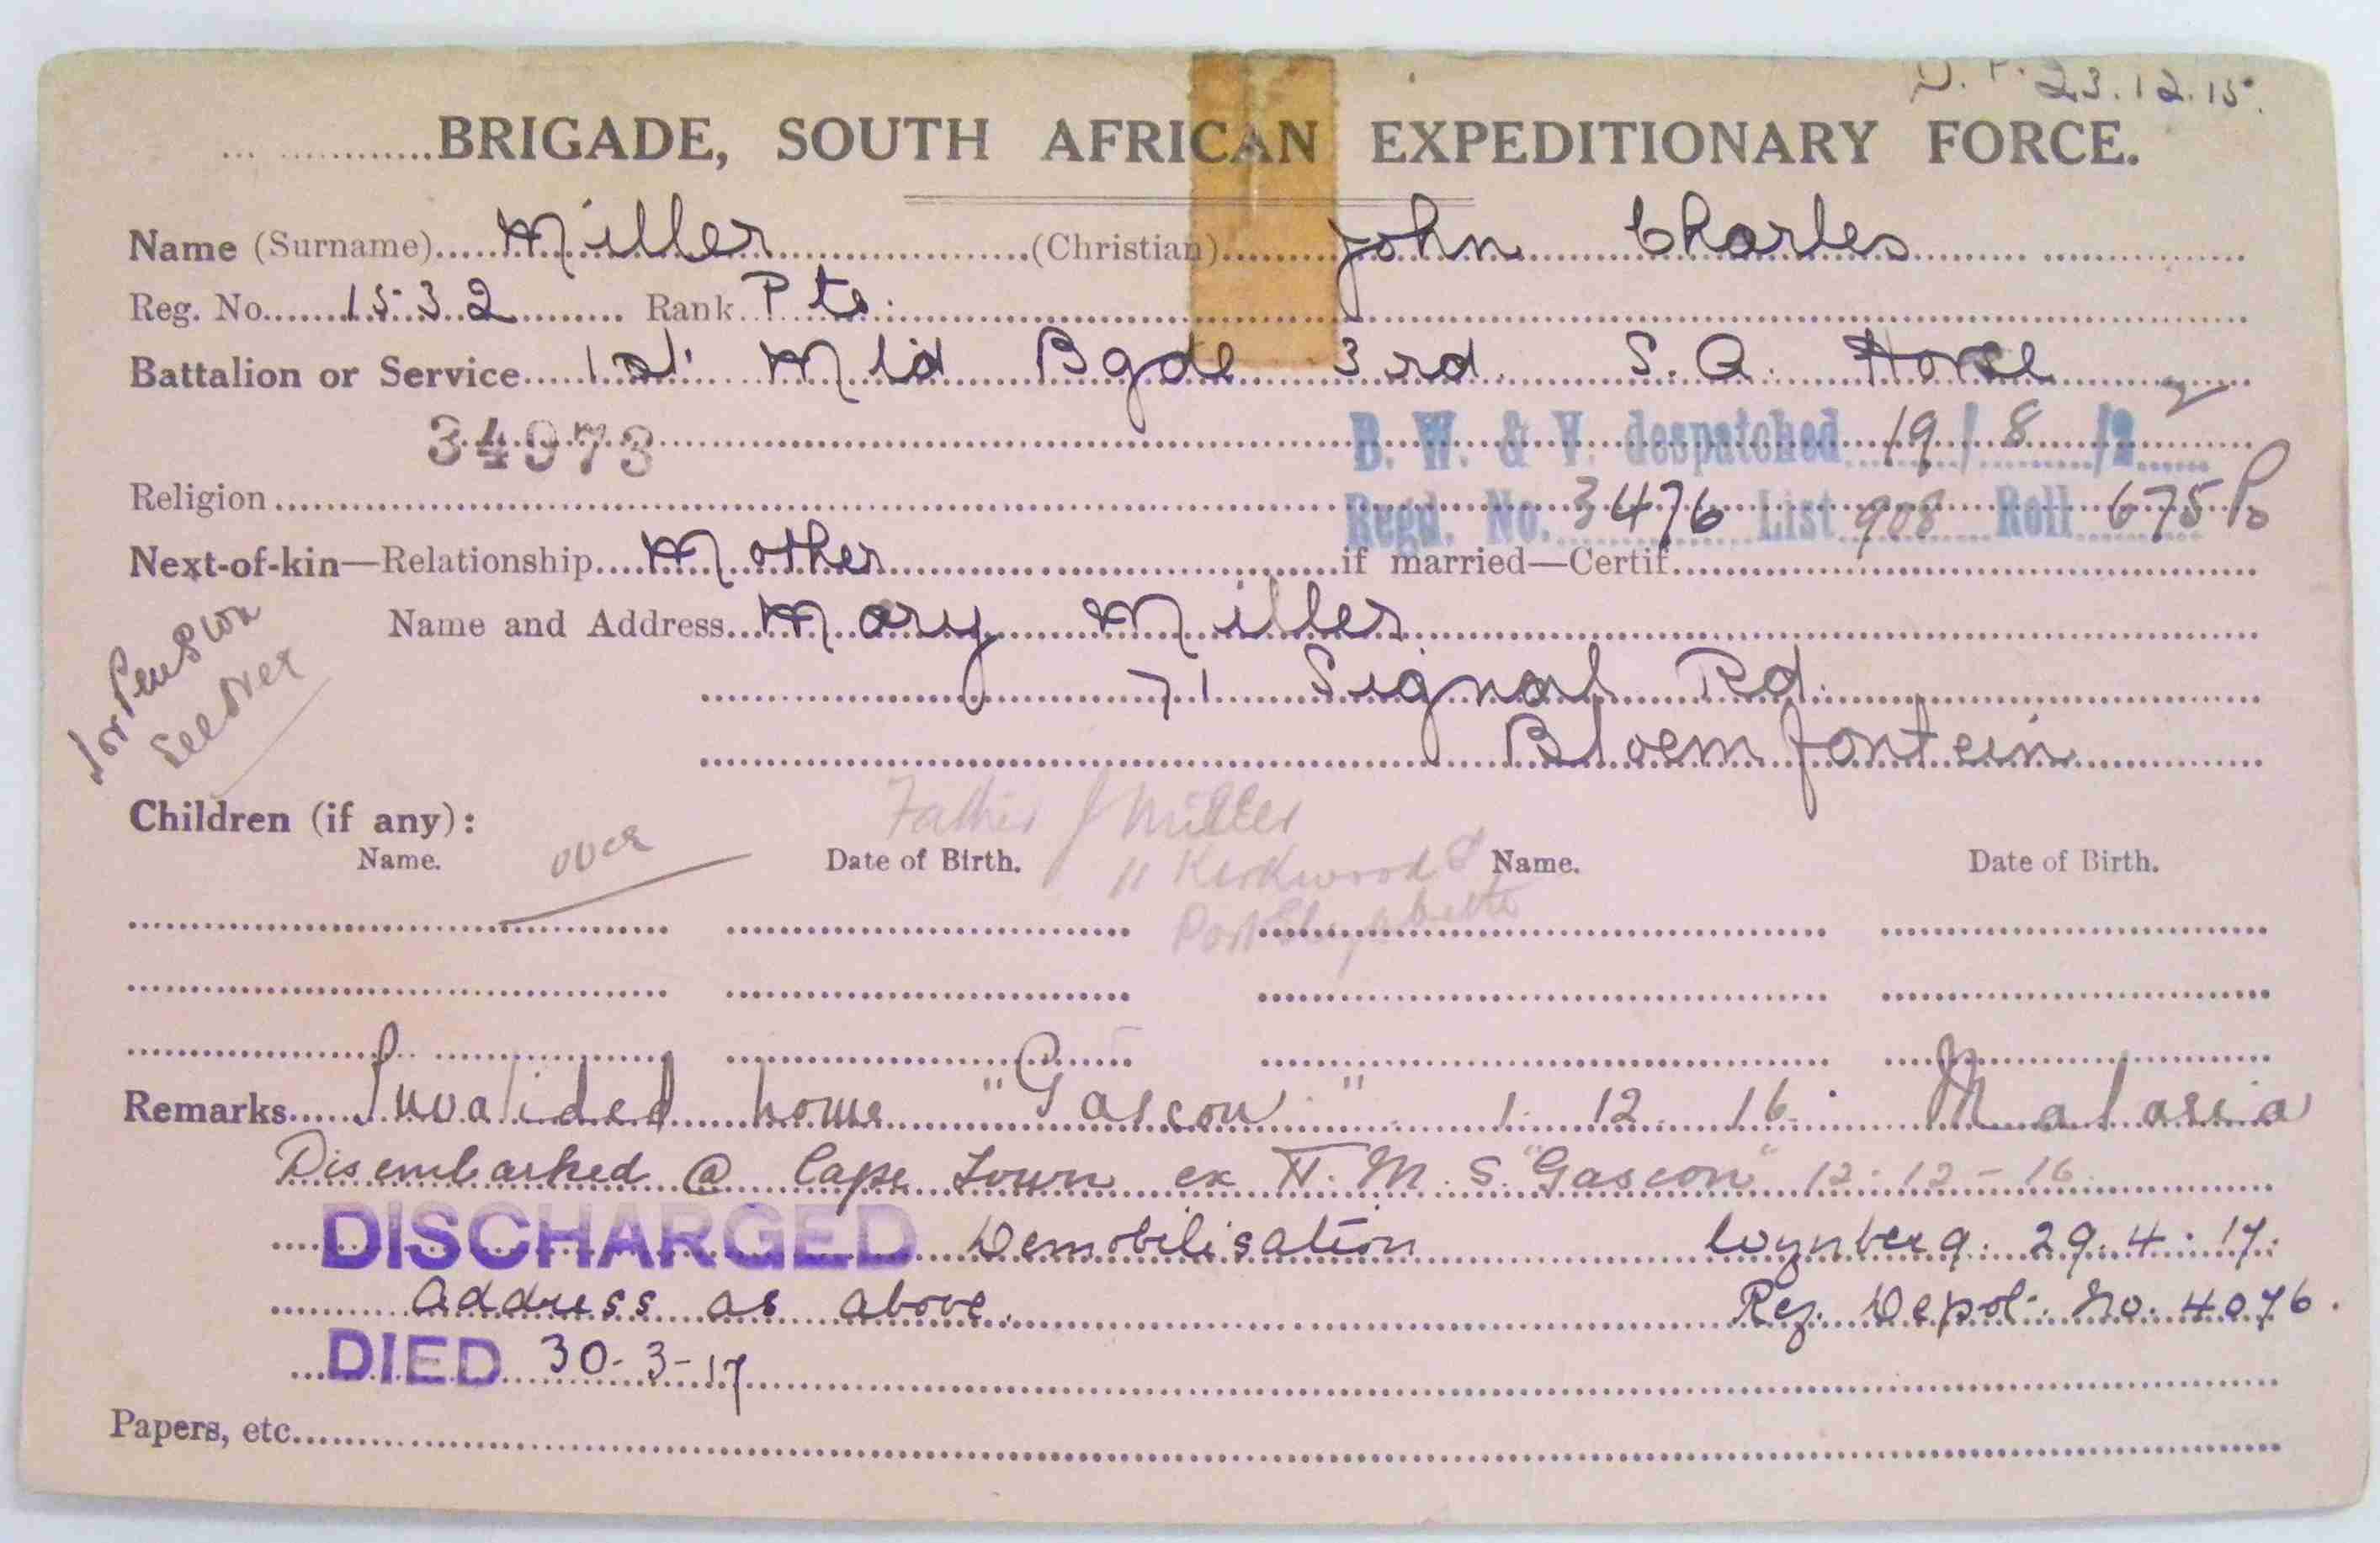 D. P. 23.12.15.
BRIGADE, SOUTH AFRICAN EXPEDITIONARY FORCE.
Name (Surname) Miller (Christian) John Charles
Reg. No. 1532 Rank Pte.
Battalion or Service 1st Mtd Bgde 3rd. S. A. Horse
34973 B. W. & V. despatched 19 / 8 /2
Religion Regd. No. 3476 List 908 Roll 675
Next-of-kin—Relationship Mother if married—Certif.
for Pension
see over
Name and Address Mary Miller
71 Signal Rd.
Bloemfontein
Father J Miller
11 Kirkwood St
Port Elizabeth
Children (if any):
Name. over Date of Birth. Name. Date of Birth.
Remarks Invalided home "Gascon" 1. 12. 16. Malaria
Disembarked @ Cape Town ex H. M. S. "Gascon" 12-12-16.
DISCHARGED Demobilisation Wynberg. 29.4.17.
Address as above. Reg. Depot. No. 4076.
DIED 30-3-17
Papers, etc.